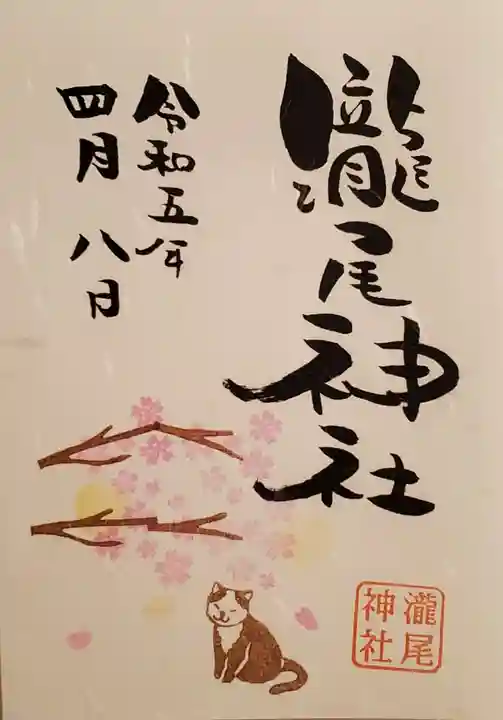 瀧尾神社
令和五年
四月八日
瀧尾
神社